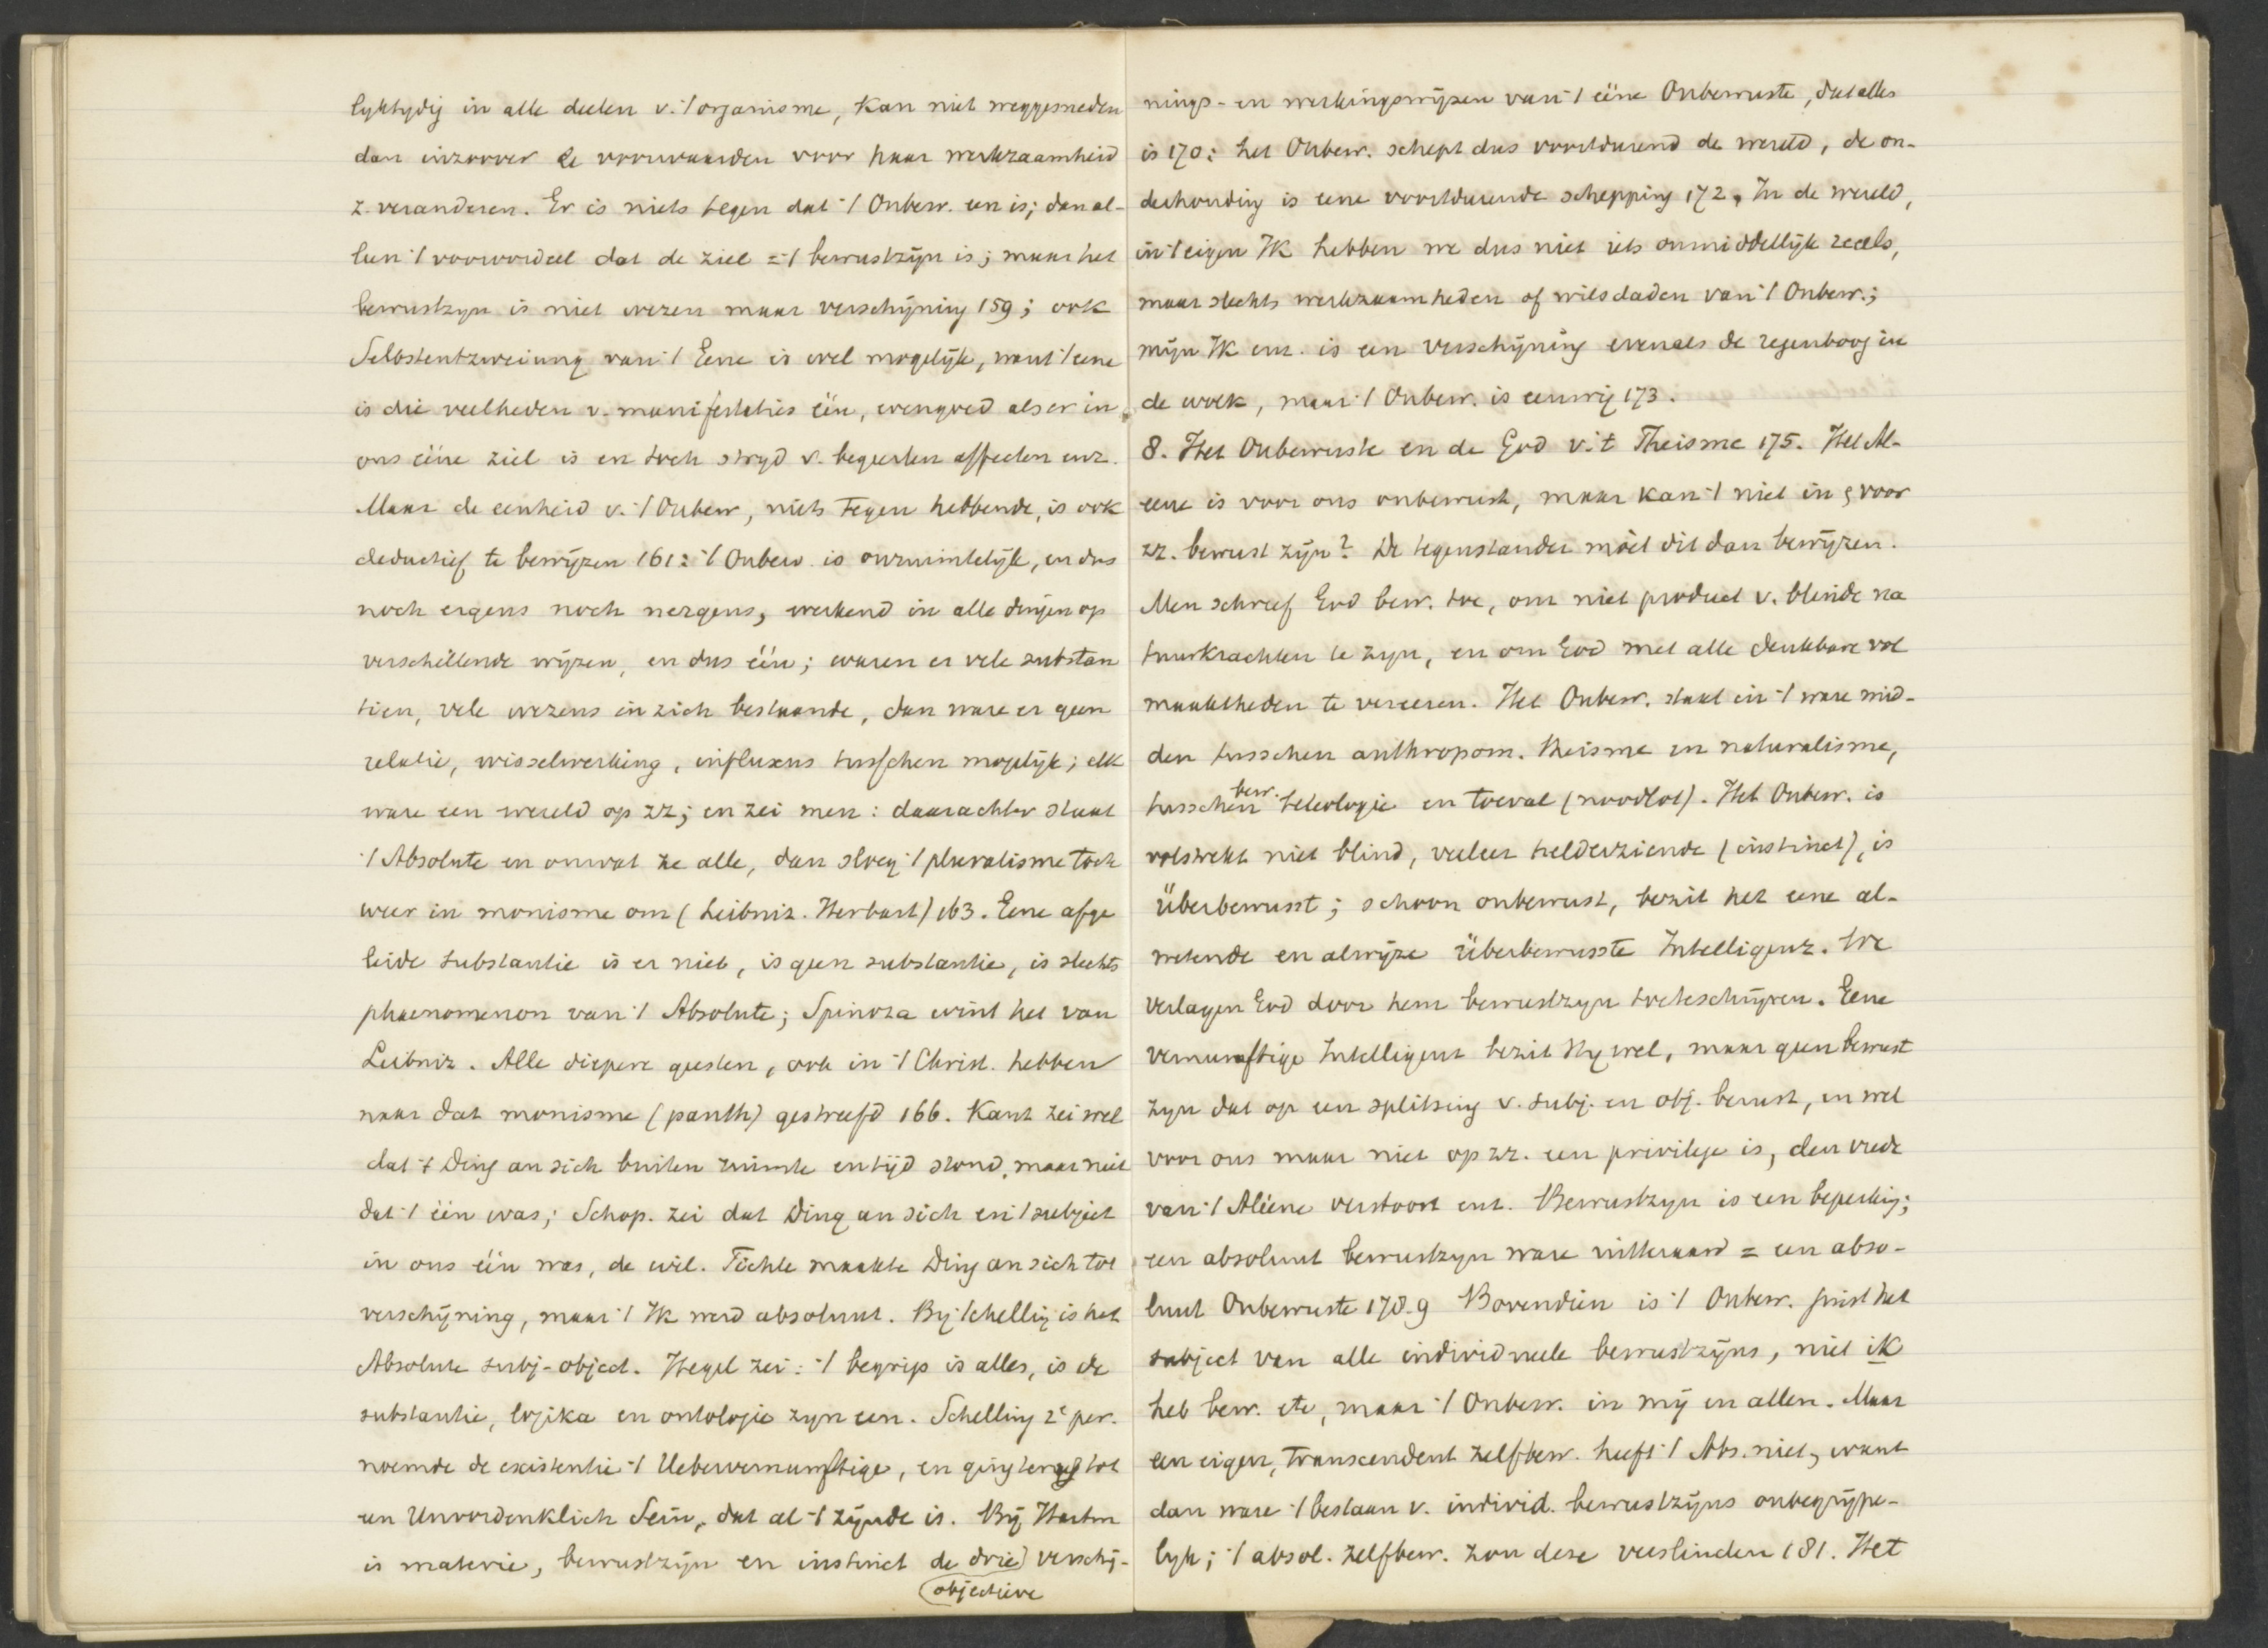 lyktydig in alle deelen v. 't organisme, kan niet weggesneden
dan inzoover de voorwaarden voor haar werkzaamheid
z. veranderen. Er is niets tegen dat 't Onbew. een is; dan al-
leen 't vooroordeel dat de ziel = 't bewustzijn is; maar het
bewustzyn is niet wezen maar verschijning 159; ook
Selbstentzweiung van 't Eene is wel mogelijk, want 't eene
is die veelheden v. manifestaties één, evengoed als er in
ons ééne ziel is en toch stryd v. begeerten affecten enz.
Maar de eenheid v. 't Onbew, niets tegen hebbende, is ook
deductief te bewijzen 161: 't Onbew. is onruimtelijk, en dus
noch ergens noch nergens, werkend in alle dingen op
verschillende wijzen, en dus één; waren er vele substan
tien, vele wezens in zich bestaande, dan ware er geen
relatie, wisselwerking, influxus tusschen mogelijk; elk
ware een wereld op zz; en zei men: daarachter staat
't Absolute en omvat ze alle, dan sloeg 't pluralisme toch
weer in monisme om (Leibniz. Herbart) 163. Eene afge
leide substantie is er niet, is geen substantie, is slechts
phaenomenon van 't Absolute; Spinoza wint het van
Leibniz. Alle diepere geesten, ook in 't Christ. hebben
naar dat monisme (panth) gestreefd 166. Kant zei wel
dat 't Ding an sich buiten ruimte en tijd stond, maar niet
dat 't één was; Schop. zei dat Ding an sich en 't subject
in ons één was, de wil. Fichte maakte Ding an sich tot
verschijning, maar 't Ik werd absoluut. By Schelling is het
Absolute subj-object. Hegel zei: 't begrip is alles, is de
substantie, logika en ontologie zyn een. Schelling 2e per.
noemde de existentie 't Uebervernunftige, en ging terug tot
een Unvordenklich Sein, dat al 't zijnde is. Bij Hartm
is materie, bewustzyn en instinct de drie verschij-
objectieve
nings- en werkingswijzen van 't ééne Onbewuste, dat alles
is 170: het Onbew. schept dus voortdurend de wereld, de on-
derhouding is eene voortdurende schepping 172. In de wereld,
in 't eigen Ik hebben we dus niet iets onmiddellijk reëels,
maar slechts werkzaamheden of wilsdaden van 't Onbew.;
mijn Ik enz. is een verschijning evenals de regenboog in
de wolk, maar 't Onbew. is eeuwig 173.
8. Het Onbewuste en de God v. 't Theisme 175. Het Al-
eene is voor ons onbewust, maar kan 't niet in & voor
zz. bewust zijn? De tegenstander moet dit dan bewijzen.
Men schreef God bew. toe, om niet product v. blinde na
tuurkrachten te zyn, en om God met alle denkbare vol
maaktheden te vereeren. Het Onbew. staat in 't ware mid-
den tusschen anthropom. theisme en naturalisme,
tusschen bew. teleologie en toeval (noodlot). Het Onbew. is
volstrekt niet blind, veeleer helderziende (instinct), is
überbewusst; schoon onbewust, bezit het eene al-
wetende en alwijze überbewusste Intelligenz. We
verlagen God door hem bewustzyn toeteschrijven. Eene
vernunftige Intelligent bezit Hy wel, maar geen bewust
zyn dat op een splitsing v. subj. en obj. berust, en wel
voor ons maar niet op zz. een privilege is, den vrede
van 't Aléene verstoort enz. Bewustzyn is een beperking;
een absoluut bewustzyn ware uitteraard = een abso-
luut Onbewuste 178.9 Bovendien is 't Onbew. juist het
subject van alle individueele bewustzijns, niet ik
heb bew. etc, maar 't Onbew. in mij en allen. Maar
een eigen, transcendent zelfbew. heeft 't Abs. niet, want
dan ware 't bestaan v. individ. bewustzijns onbegrijpe-
lyk; 't absol. zelfbew. zou deze verslinden 181. Het